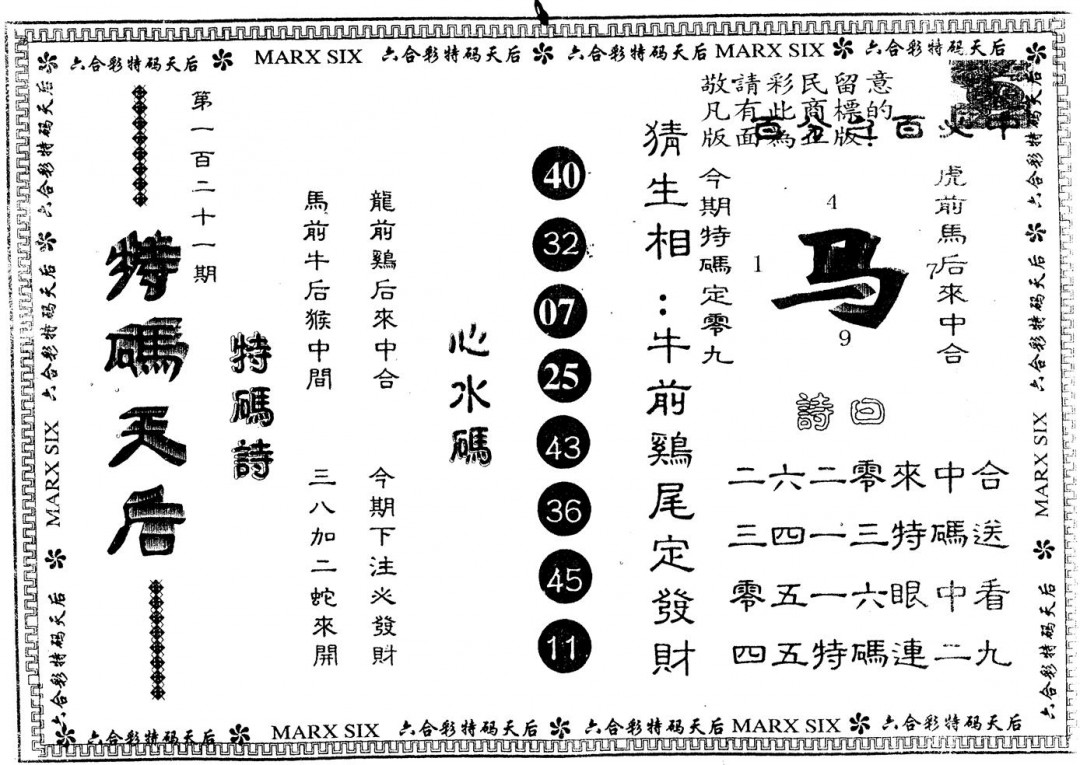 六合彩特码天后 MARX SIX 六合彩特码天后 六合彩特码天后 MARX SIX 六合彩特码天后
敬請彩民留意
凡有此商標的
版面為正版!
虎前馬后來中合
4
1
马
7
9
今期特碼定零九
詩曰
二六二零來中合
三四一三特碼送
零五一六眼中看
四五特碼連二九
猜生相:牛前鷄尾定發財
40
32
07
25
43
36
45
11
心水碼
龍前鷄后來中合 今期下注必發財
馬前牛后猴中間 三八加二蛇來開
特碼詩
第一百二十一期
特碼天后
六合彩特码天后 六合彩特码天后 六合彩特码天后 MARX SIX 六合彩特码天后
六合彩特码天后 六合彩特码天后 MARX SIX 六合彩特码天后
六合彩特码天后 MARX SIX 六合彩特码天后 六合彩特码天后 MARX SIX 六合彩特码天后